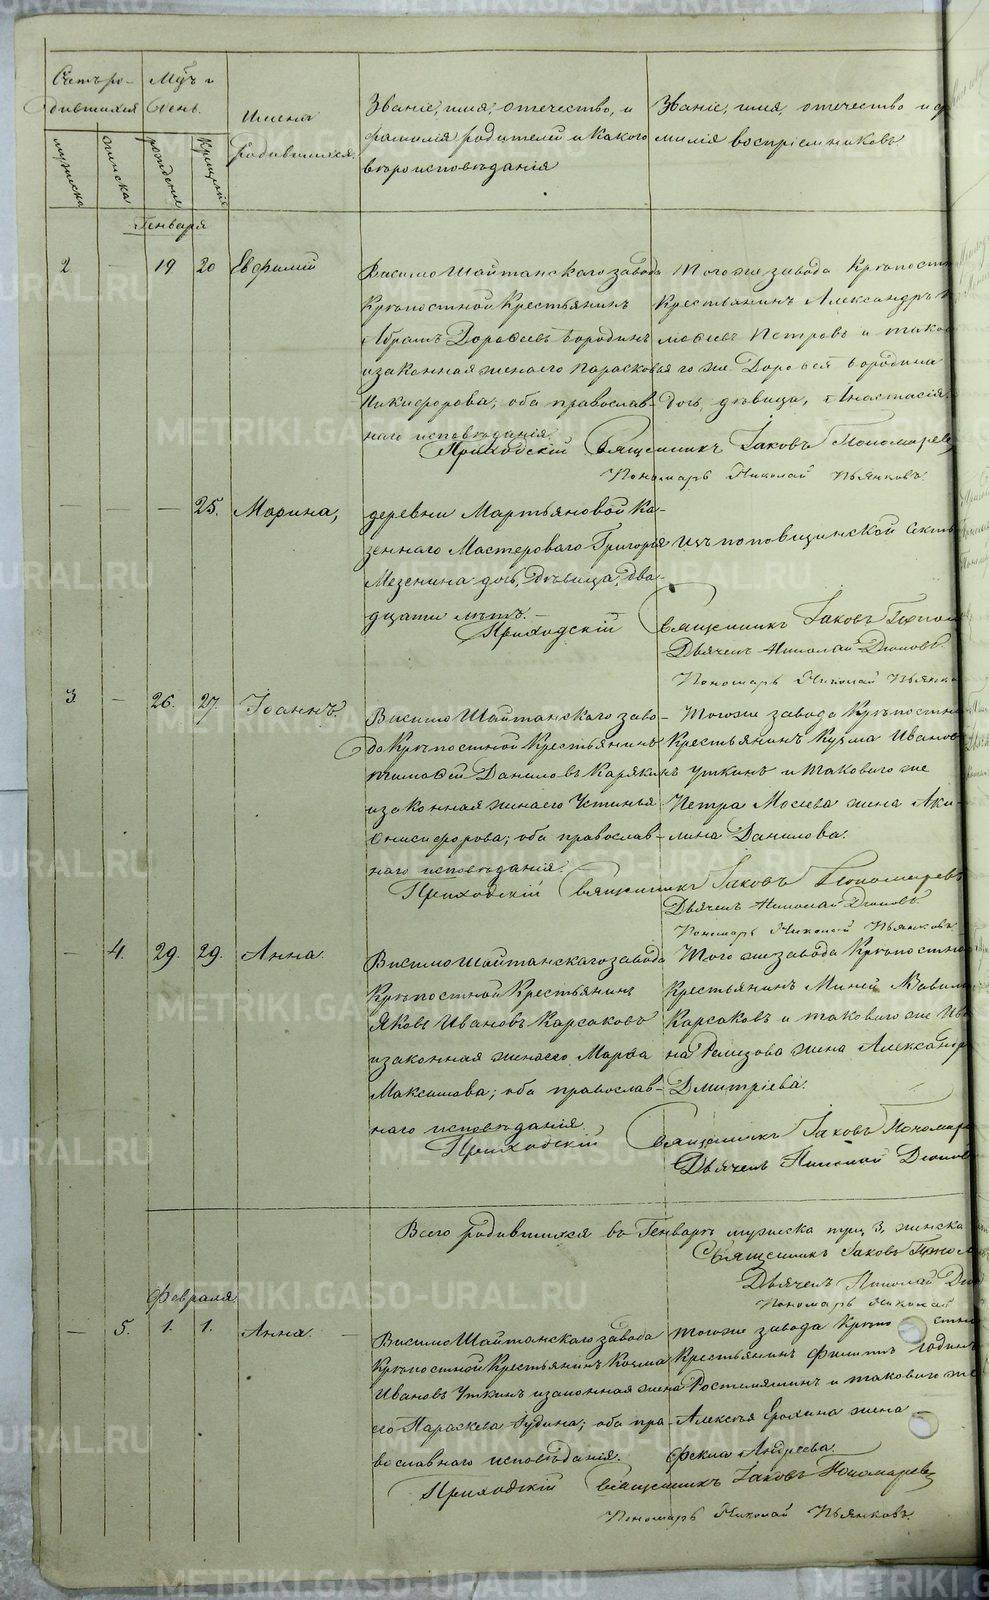 Счетъ ро-
дившихся
Мцъ и
День
Имена
родившихся
Званіе, имя, отечество, и
фамилія родителей и какого
вѣроисповѣданія
Званіе, имя, отечество и фа
милія воспріемниковъ
мужска
женска
рожденія
крещенія
Генваря
2 — 19 20 Евфимій
Висимо Шайтанскаго завода
Крѣпостной Крестьянинъ
Абрамъ Дорофеевъ Бородинъ
и законная жена его Парасковья
Никифорова; оба православ-
наго исповѣданія.
Того же завода Крѣпостн
Крестьянинъ Александръ
Петровъ и таково
го же Дорофея Бородина
дочь, дѣвица, Анастасія.
Приходскій Священникъ Іаковъ Пономаревъ
Пономарь Николай Пьянковъ
— — — 25. Марина,
деревни Мартьяновой Ка-
зеннаго Мастероваго Григорія
Мезенина дочь, дѣвица, два-
дцати лѣтъ. —
изъ поповщинской Секты
Приходскій Священникъ Іаковъ Поном
Дьячекъ Николай
Пономарь Николай Пьянко
3 — 26. 27. Іоаннъ.
Висимо Шайтанскаго заво-
да Крѣпостной Крестьянинъ
Тимофей Даниловъ Карякинъ
и законная жена его Устинья
Онисифорова; оба православ-
наго исповѣданія.
Того же завода Крѣпостн
Крестьянинъ Кузма Иванов
Уткинъ и таковаго же
Петра Мосіева жена Аку-
лина Данилова.
Приходскій Священникъ Іаковъ Пономаревъ
Дьячекъ Николай
Пономарь Николай Пьянковъ
— 4. 29. 29. Анна.
Висимо Шайтанскаго завода
Крѣпостной Крестьянинъ
Яковъ Ивановъ Карсаковъ
и законная жена его Марфа
Максимова; оба православ-
наго исповѣданія.
Того же завода Крѣпостно
Крестьянинъ Миней Вавил
Карсаковъ и таковаго же Ива
на Ремизова жена Александр
Дмитріева.
Приходскій Священникъ Іаковъ Пономаре
Дьячекъ Николай
Всего родившихся въ Генварѣ мужска 3, женска
Священникъ Іаковъ Поно
Дьячекъ Николай
Пономарь Николай
Февраля
— 5. 1. 1. Анна. —
Висимо Шайтанскаго завода
Крѣпостной Крестьянинъ Козма
Ивановъ Уткинъ и законная жена
его Параскева Іудина; оба пра-
вославнаго исповѣданія.
Того же завода Крѣпо стны
Крестьянинъ Филиппъ
и таковаго же
Алексѣя Ерохина жена
Фекла Андреева.
Приходскій Священникъ Іаковъ Пономаревъ
Пономарь Николай Пьянковъ
METRIKI.GASO-URAL.RU